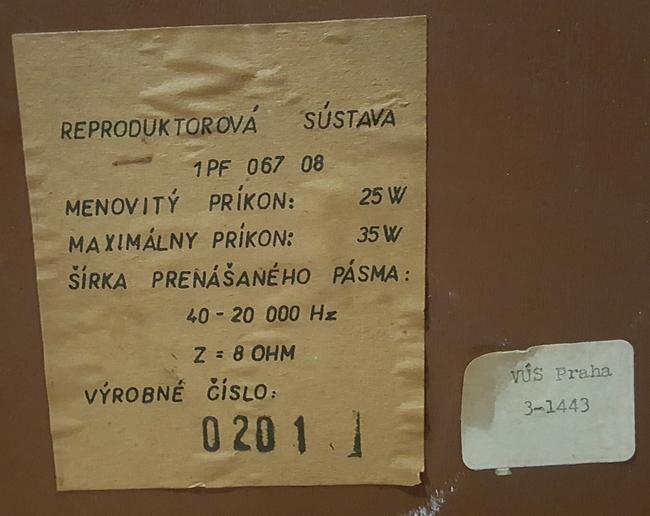 REPRODUKTOROVÁ SÚSTAVA
1PF 067 08
MENOVITÝ PRÍKON: 25 W
MAXIMÁLNY PRÍKON: 35 W
ŠÍRKA PRENÁŠANÉHO PÁSMA:
40 - 20 000 Hz
Z = 8 OHM
VÝROBNÉ ČÍSLO:
0201
VÚS Praha
3-1443